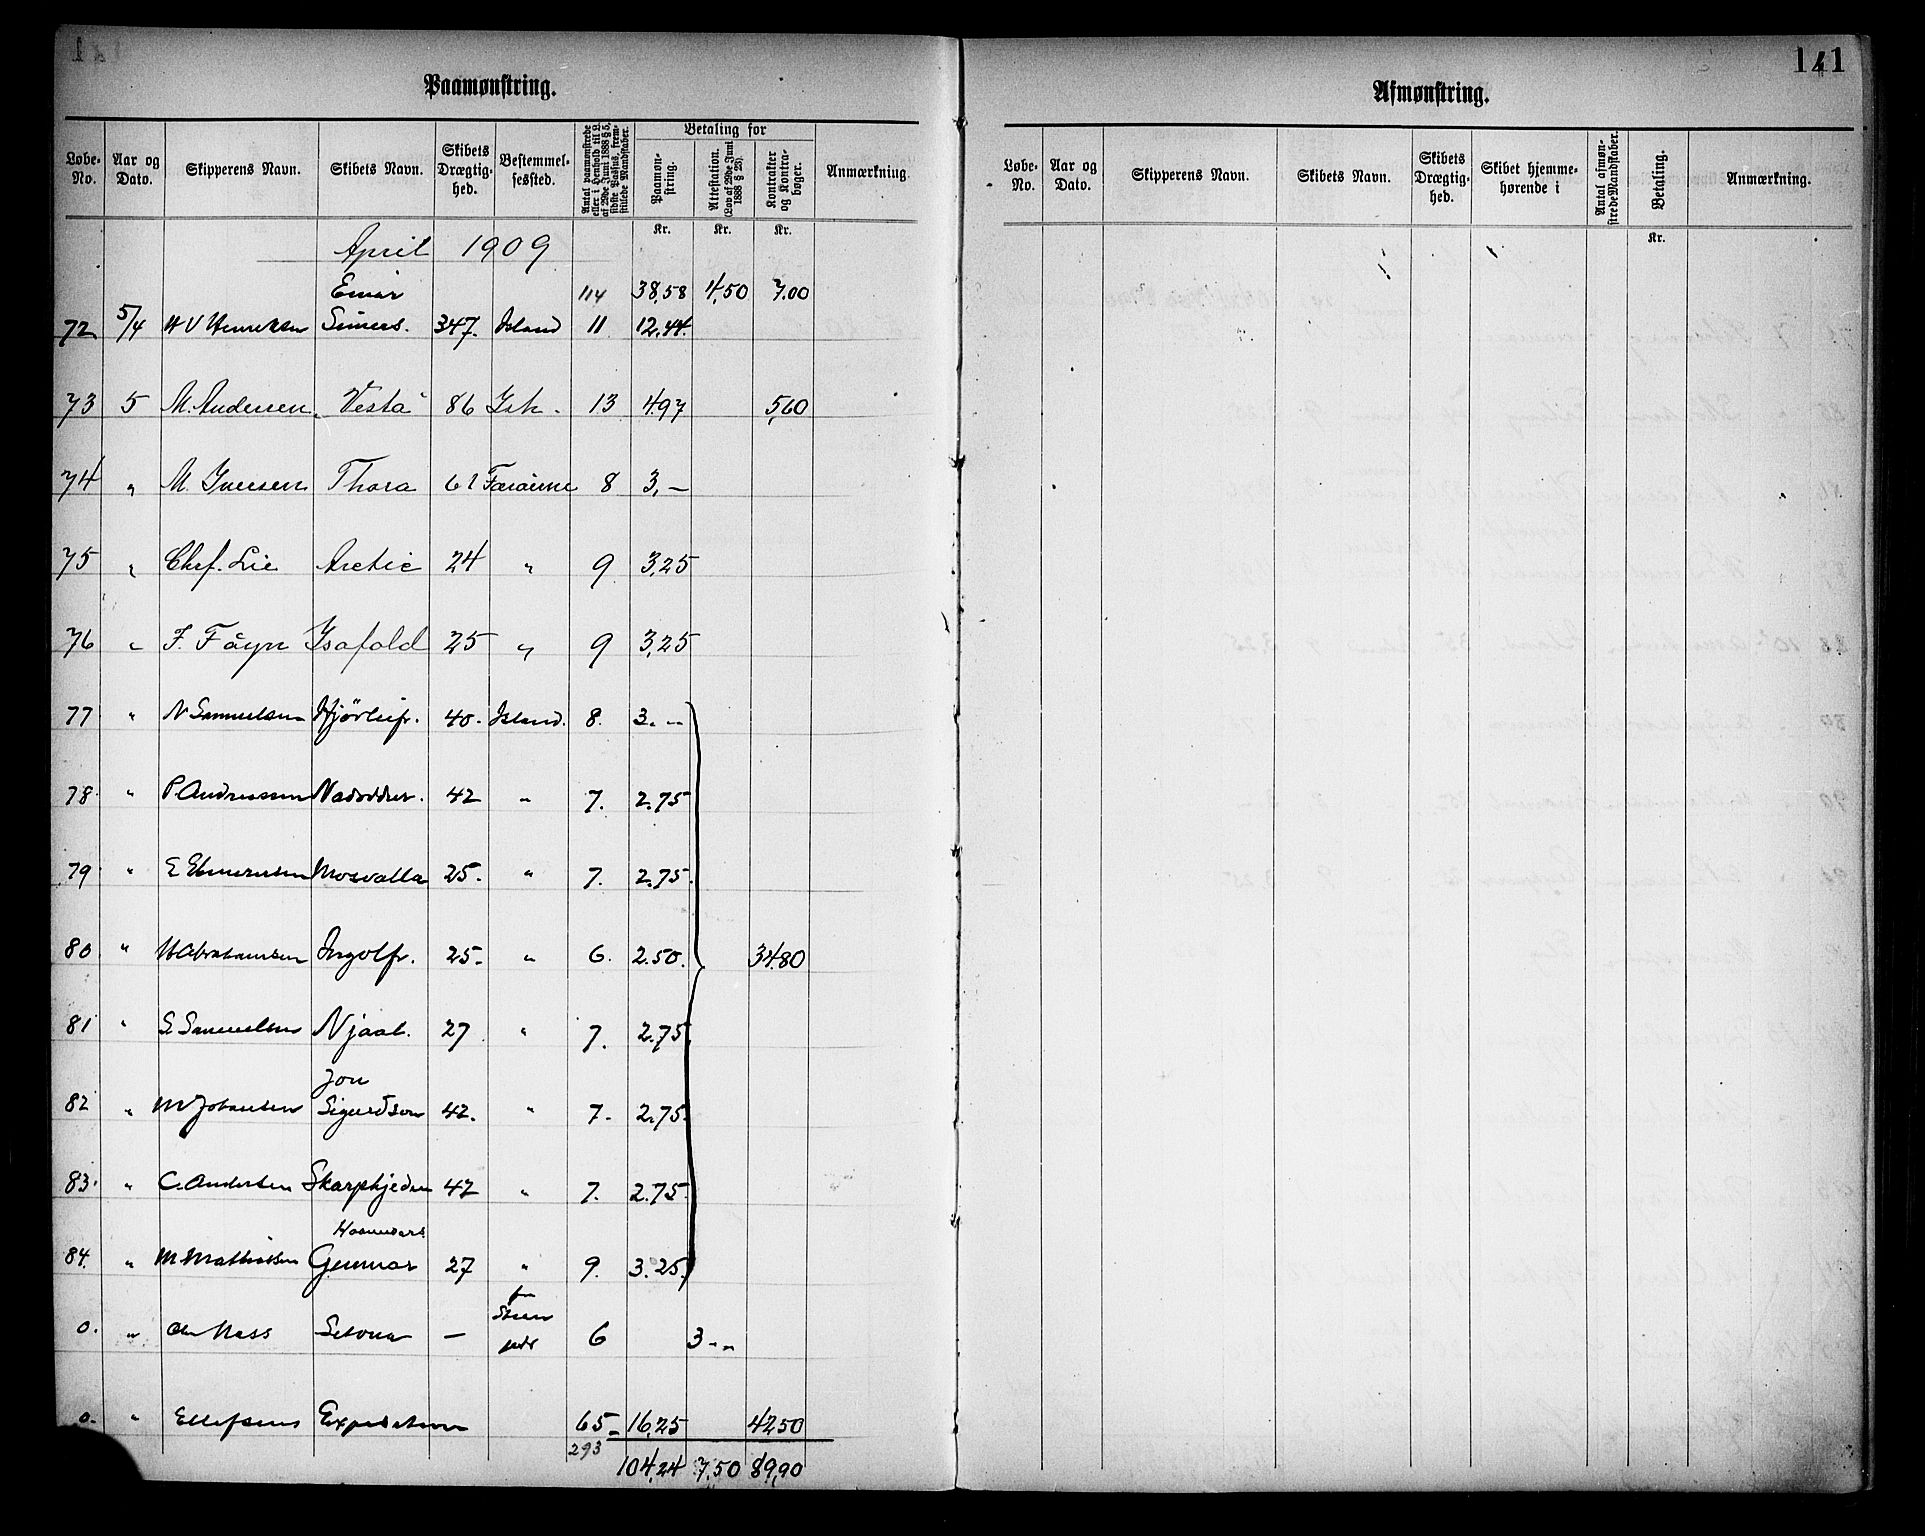 Paamønstring.
Løbe-No. Aar og Dato. Skipperens Navn. Skibets Navn. Skibets Drægtighed. Bestemmelsessted. Antal paamønstrede eller i Henhold til L. af 29de Juni 1888 § 5, sidste Passus, fremstillede Mandskaber. Betaling for Paamønstring. Attestation. (Lov af 29de Juni 1888 § 25). Kontrakter og Kontrabøger. Anmærkning.
Kr. Kr. Kr.
April 1909
Einar 114 38,58 4,50 7.00
72 5/4 H V Henriksen Simers. 347. Island 11 12.44.
73 5 M. Andersen Vesta 86 Ish. 13 4.97 5,60
74 " M. Iversen Thora 61 Færøerne 8 3,—
75 " Chrf. Lie Arctic 24 " 9 3,25
76 " F. Føyn Isafold 25 " 9 3,25
77 " N Samuelsen Hjörleifr. 40. Island. 8. 3.--
78 " P. Andreassen Nadoddur. 42 " 7. 2.75
79 " E Elmersen Mosvalla 25. " 7. 2.75.
80 " H Abrahamsen Ingolfr. 25- " 6. 2.50. 34.80
81 " S. Samuelsen Njaal. 27 " 7. 2.75.
Jon
82 " M Johansen Sigurdson 42. " 7. 2.75.
83. " C. Andersen Skarphjedin 42 " 7. 2.75.
84. " M Mathiassen Gunnar 27 " 9. 3.25.
0. " Chr Nass — 6 3--
0. " Ellefsens Expedition 65- 16,25 42,50
293 104,24 7,50 89,90
141
Afmønstring.
Løbe-No. Aar og Dato. Skipperens Navn. Skibets Navn. Skibets Drægtighed. Skibet hjemmehørende i Antal afmønstrede Mandskaber. Betaling. Anmærkning.
Kr.